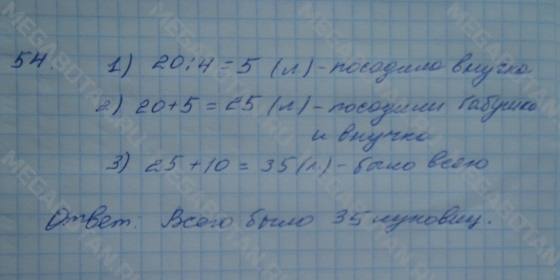 54. 1) 20:4 = 5 (л) - посадила внучка
2) 20+5 = 25 (л) - посадили бабушка
и внучка
3) 25 + 10 = 35 (л) - было всего
Ответ: Всего было 35 луковиц.